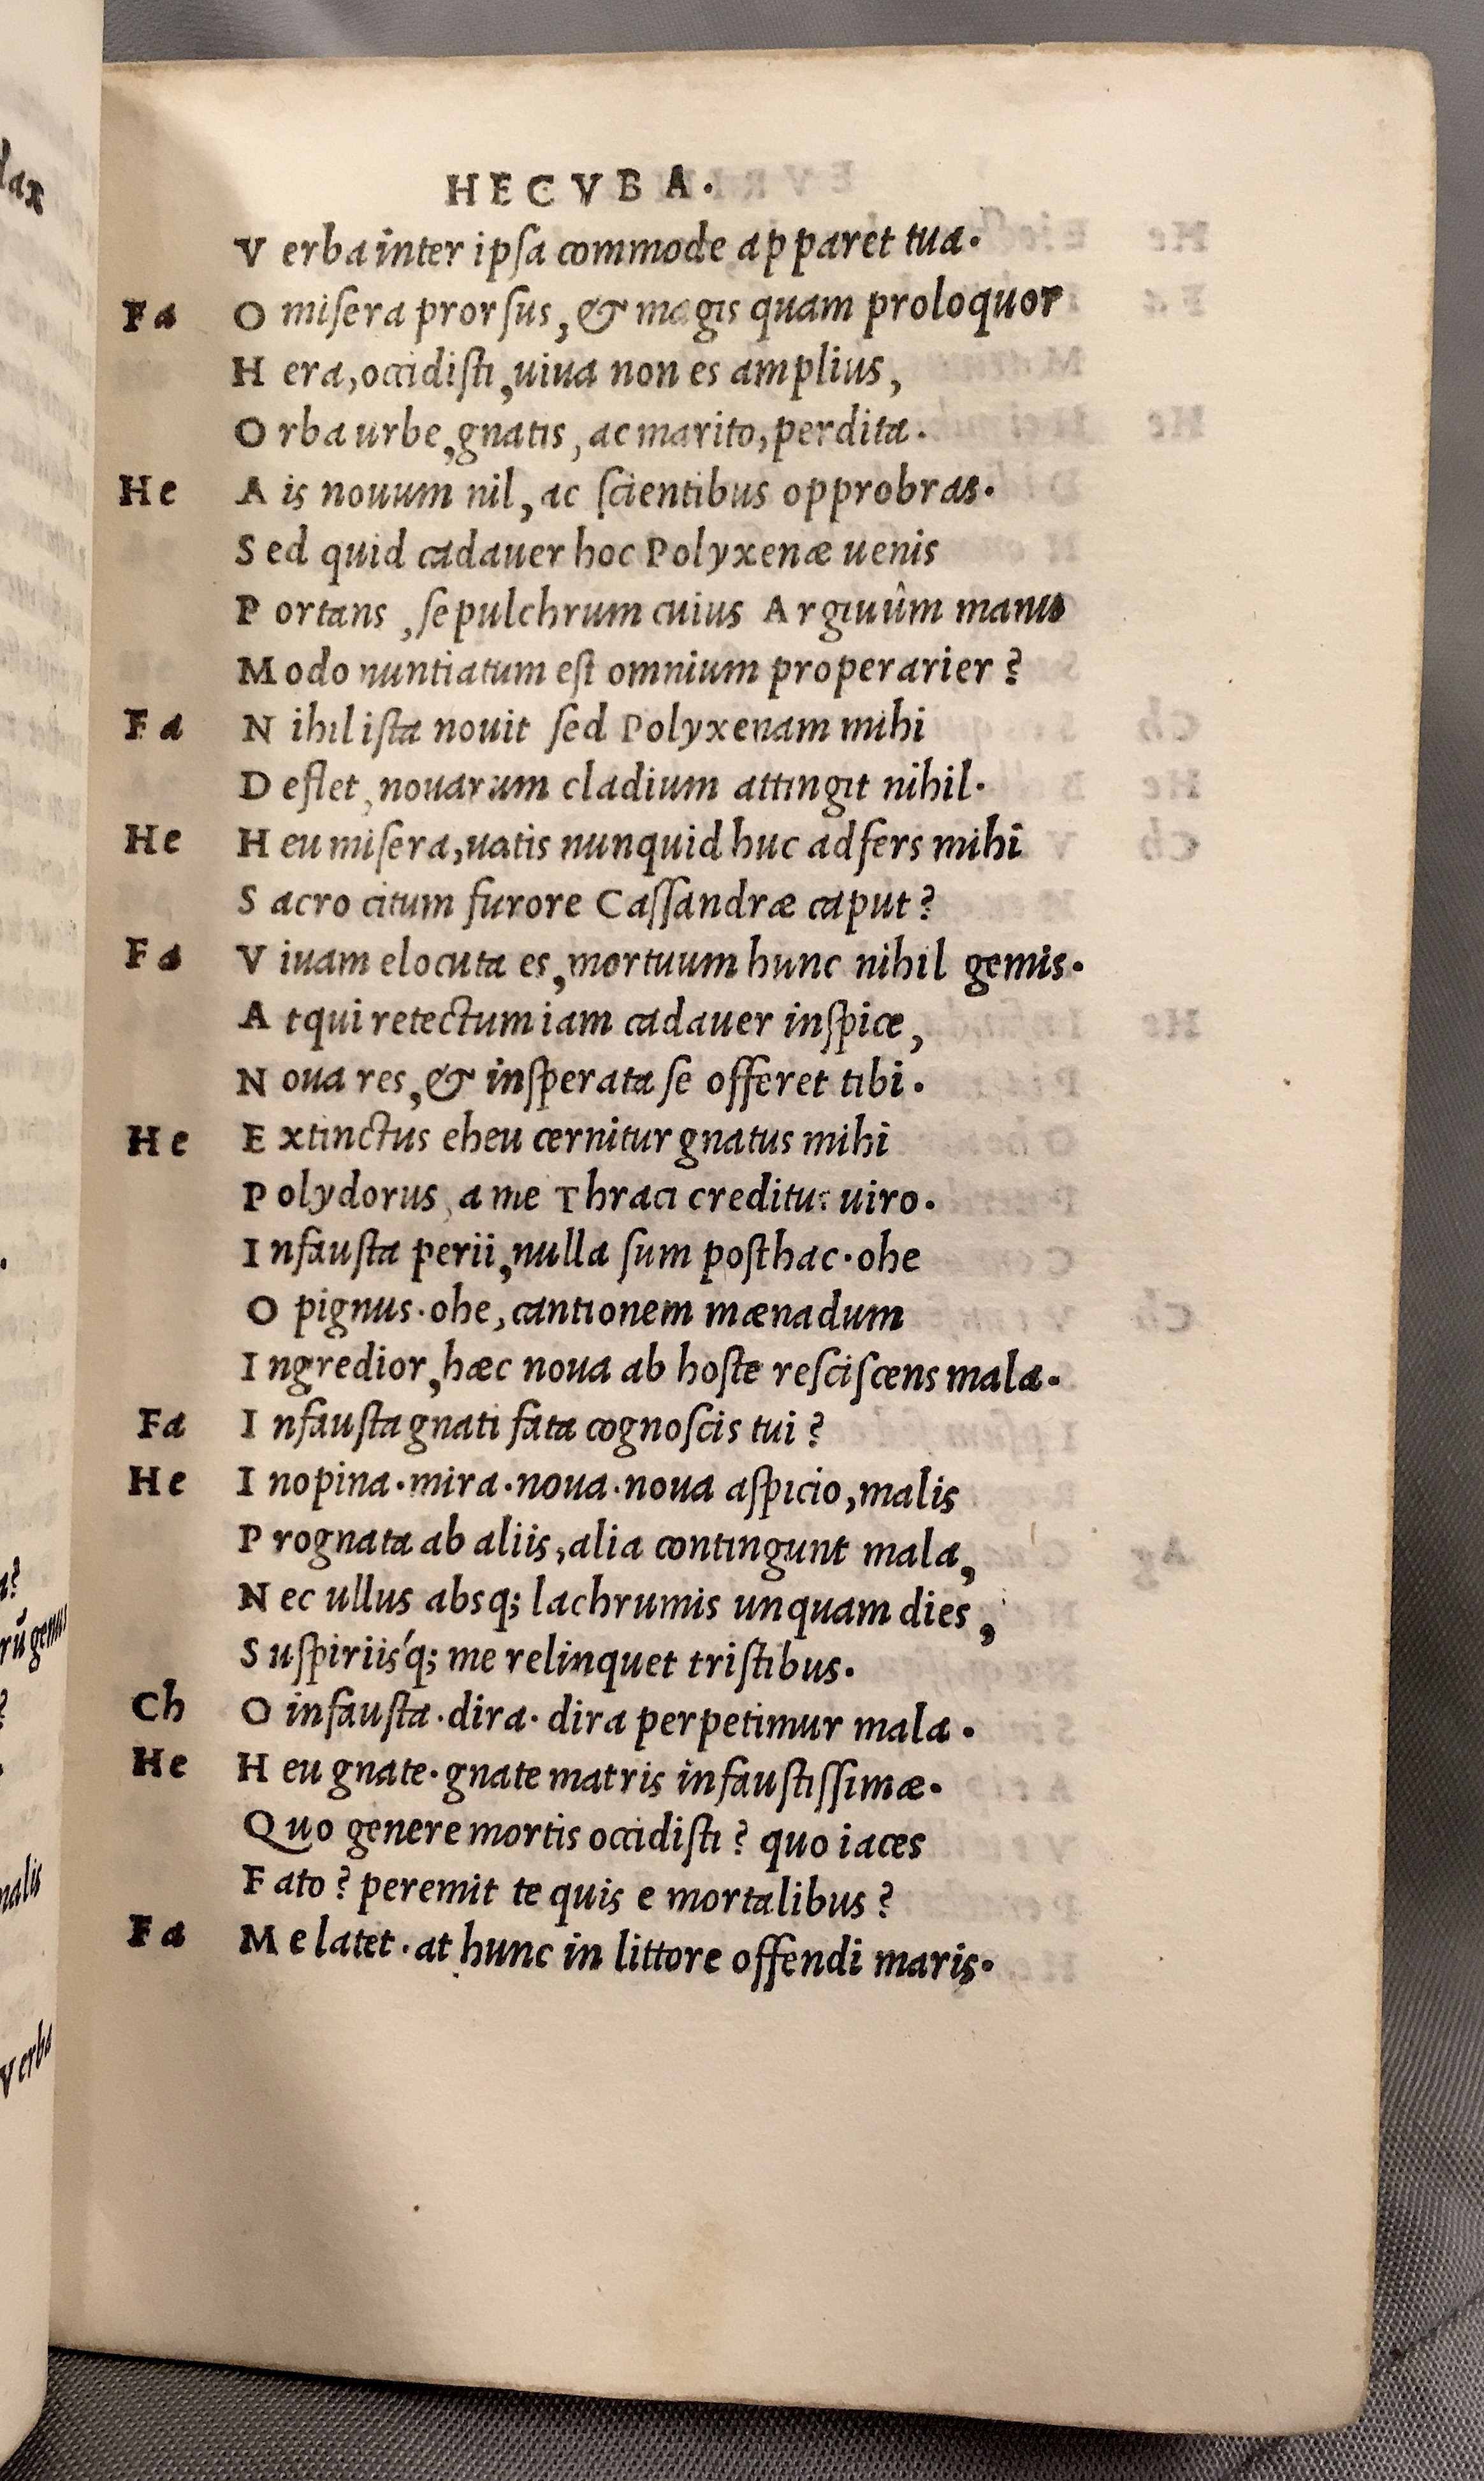 HECVBA.
V erba inter ipſa commode apparet tua.
Fa O miſera prorſus, & magis quam proloquor
H era, occidiſti, uiua non es amplius,
O rba urbe, gnatis, ac marito, perdita.
He A is nouum nil, ac ſcientibus opprobras.
S ed quid cadauer hoc Polyxenæ uenis
P ortans, ſepulchrum cuius Argiuûm manu
M odo nuntiatum eſt omnium properarier?
Fa N ihil iſta nouit ſed Polyxenam mihi
D eflet, nouarum cladium attingit nihil.
He H eu miſera, uatis nunquid huc adfers mihi
S acro citum furore Caſſandræ caput?
Fa V iuam elocuta es, mortuum hunc nihil gemis.
A tqui retectum iam cadauer inſpice,
N oua res, & inſperata ſe offeret tibi.
He E xtinctus eheu cernitur gnatus mihi
P olydorus, a me Thraci creditur uiro.
I nfauſta perii, nulla ſum poſthac. ohe
O pignus. ohe, cantionem mænadum
I ngredior, hæc noua ab hoſte reſciſcens mala.
Fa I nfauſta gnati fata cognoſcis tui?
He I nopina. mira. noua. noua aſpicio, malis
P rognata ab aliis, alia contingunt mala,
N ec ullus absq; lachrumis unquam dies,
S uſpiriis'q; me relinquet triſtibus.
Ch O infauſta. dira. dira perpetimur mala.
He H eu gnate. gnate matris infauſtiſſimæ.
Quo genere mortis occidiſti? quo iaces
F ato? peremit te quis e mortalibus?
Fa M e latet. at hunc in littore offendi maris.